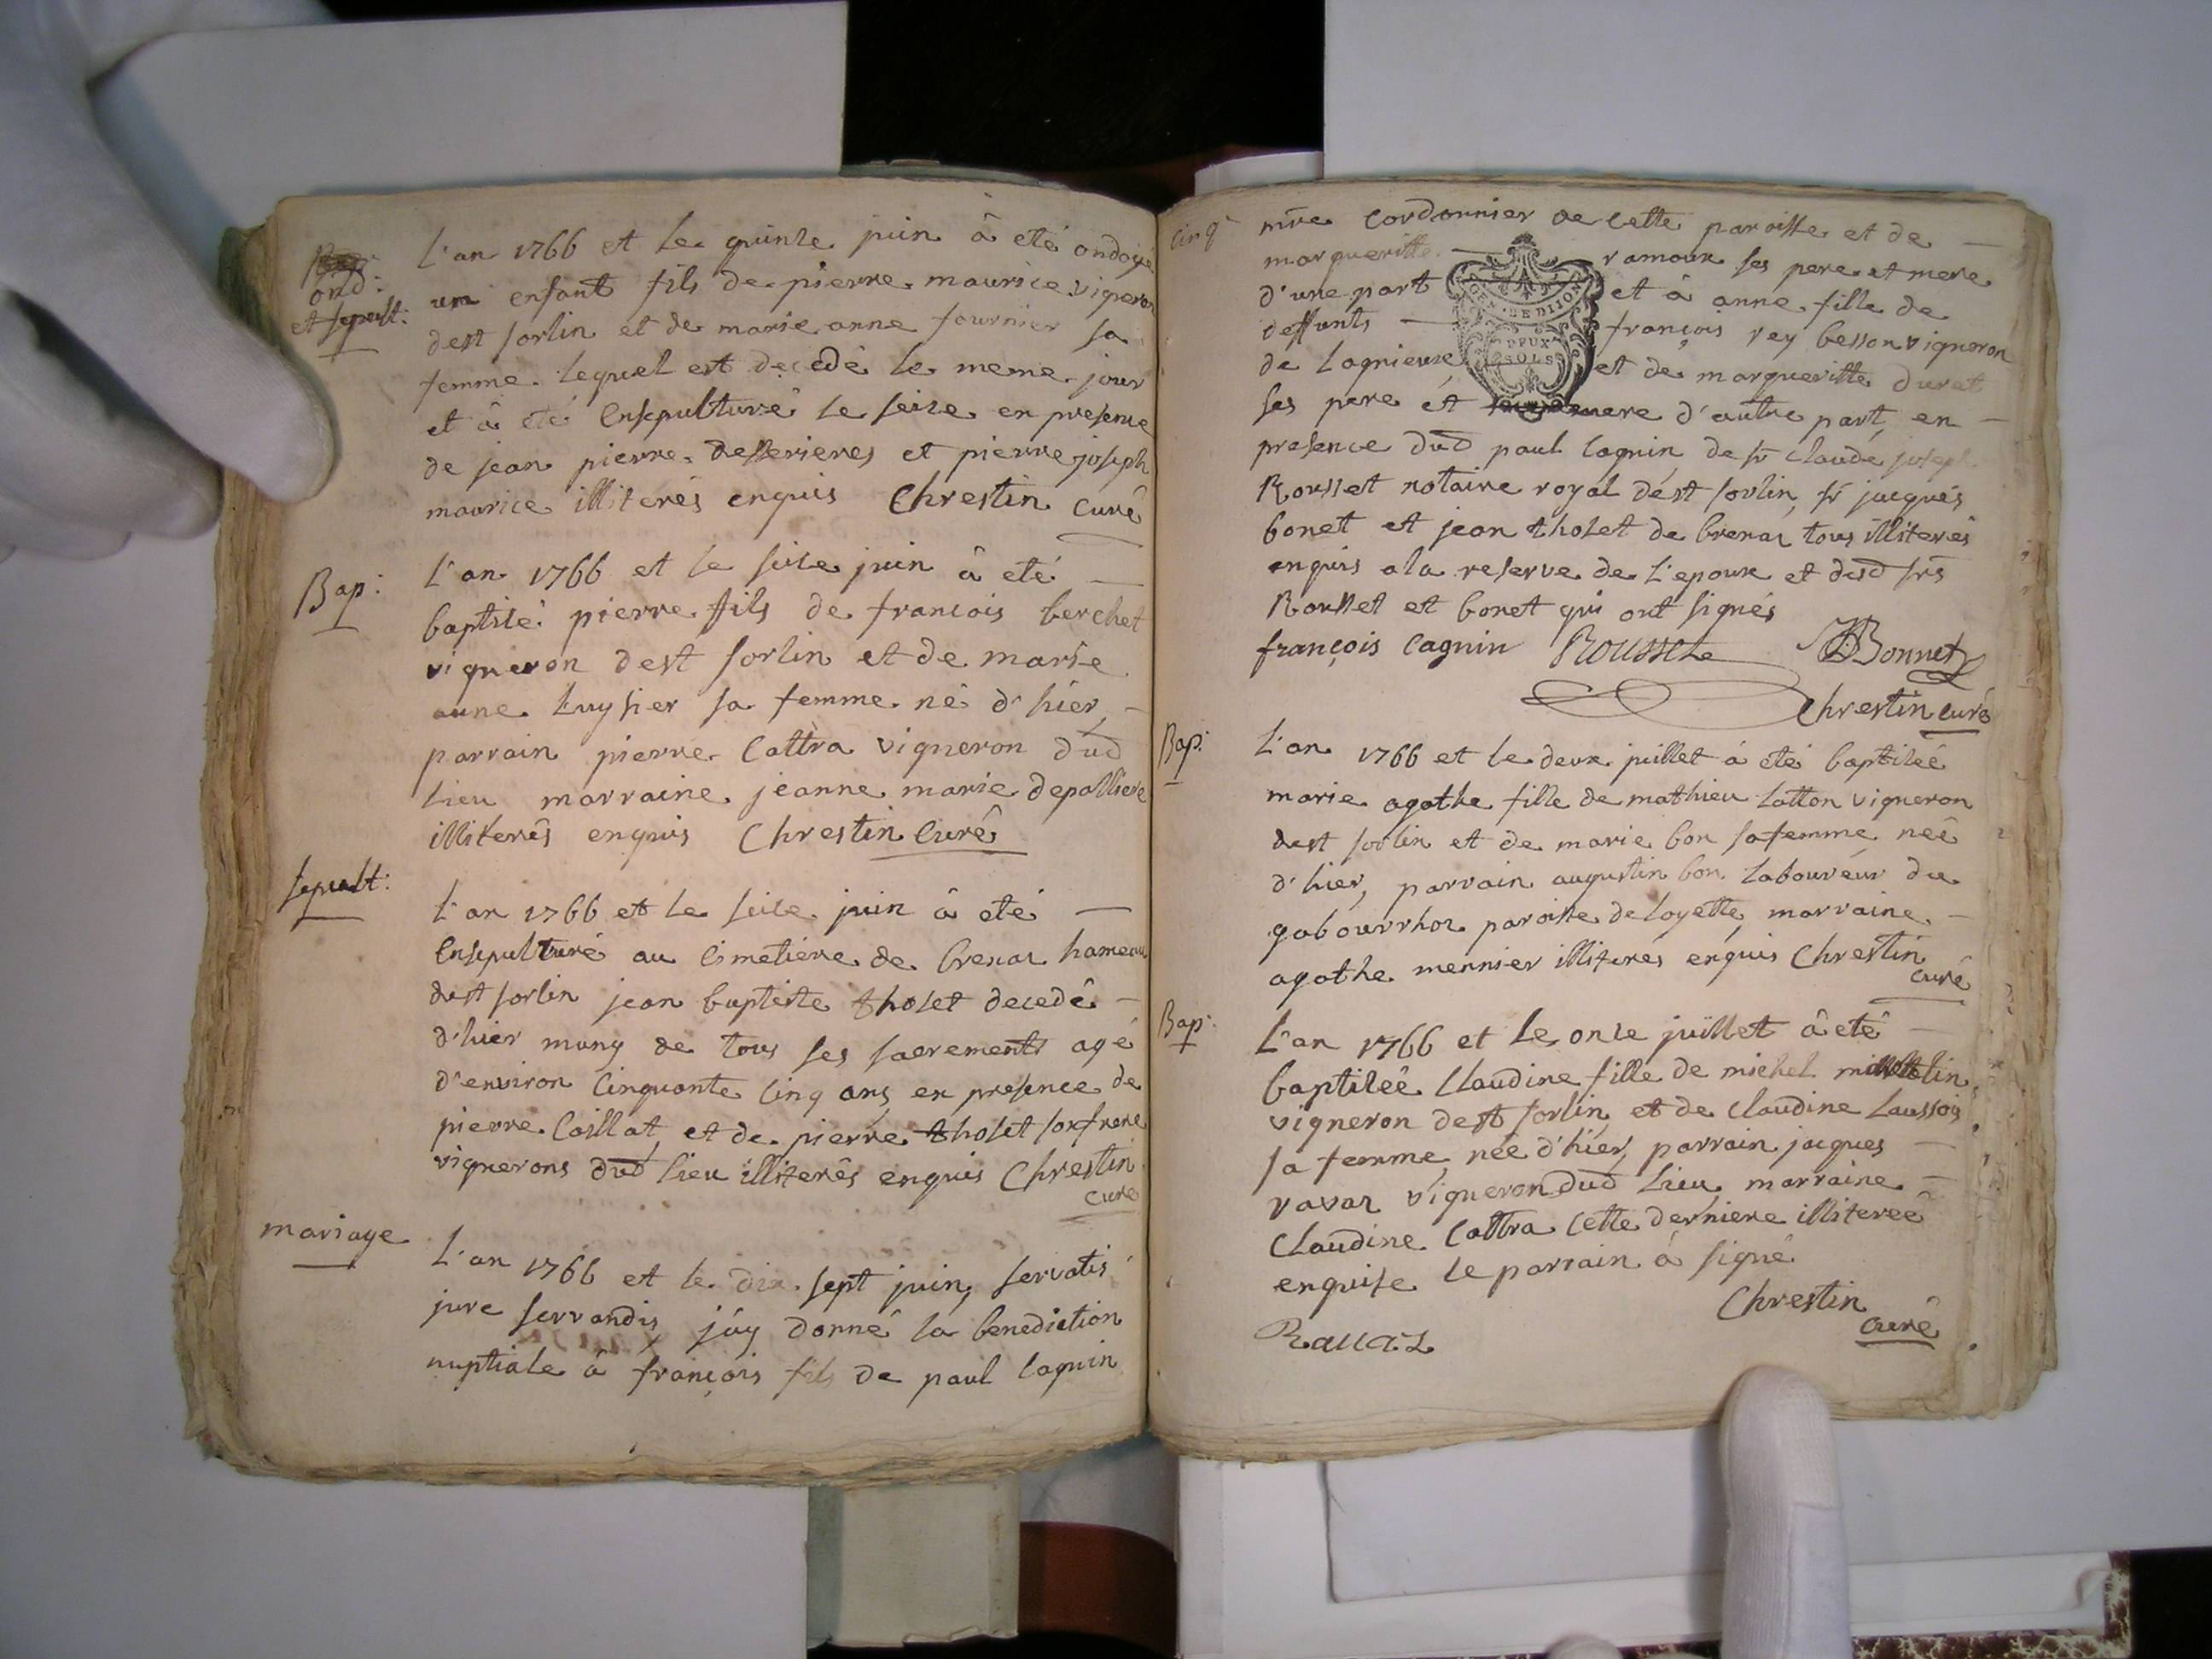 ond:
et sepult:
L'an 1766 et le quinze juin â eté ondoyé
un enfant fils de pierre maurice vigneron
dest sorlin et de marie anne fournier sa
femme lequel est decedé le meme jour
et â eté ensepulturé le seize en presence
de jean pierre desserieres et pierre joseph
maurice illiterés enquis Chrestin curé
Bap:
L'an 1766 et le seize juin â eté
baptizé pierre fils de francois berchet
vigneron dest sorlin et de marie
anne luysier sa femme né d'hier,
parrain pierre Cattra vigneron dud
lieu marraine jeanne marie depalliere
illiterés enquis Chrestin Curé
sepult:
L'an 1766 et le seize juin â eté
Ensepulturé au Cimetiere de brenaz hameau
dest sorlin jean baptiste tholet decedé
d'hier muny de tous ses sacrements agé
d'environ Cinquante Cinq ans en presence de
pierre Caillat et de pierre tholet son frere
vignerons dud lieu illiterés enquis Chrestin
curé
mariage
L'an 1766 et le dix sept juin, servatis
jure servandis j'ay donné la benediction
nuptiale â françois fils de paul Cagnin
Cinq
mre Cordonnier de Cette paroisse et de
margueritte ramoux ses pere et mere
GEN. DE DIJON
DEUX
SOLS
d'une part et â anne fille de
deffunts françois rey besson vigneron
de Lagnieux et de margueritte duret
ses pere et mere d'autre part, en
presence dud paul Cagnin de sr Claude joseph
Rousset notaire royal dest sorlin, sr jacques
bonet et jean tholet de brenaz tous illiterés
enquis a la reserve de L'epoux et desd srs
Rousset et bonet qui ont signés
françois Cagnin Rousset Bonnet
Chrestin curé
Bap:
L'an 1766 et le deux juillet â eté baptizée
marie agathe fille de mathieu Cotton vigneron
dest sorlin et de marie bon sa femme née
d'hier, parrain augustin bon laboureur du
gabourrhoz paroisse de loyette, marraine
agathe mennier illiterés enquis Chrestin
curé
Bap:
L'an 1766 et Le onze juillet â eté
baptizée Claudine fille de michel
vigneron dest sorlin et de Claudine Laussois
sa femme née d'hier, parrain jacques
ravaz vigneron dud lieu, marraine
Claudine Cattra Cette derniere illiterée
enquise le parrain â signé
Chrestin
curé
Rauaz